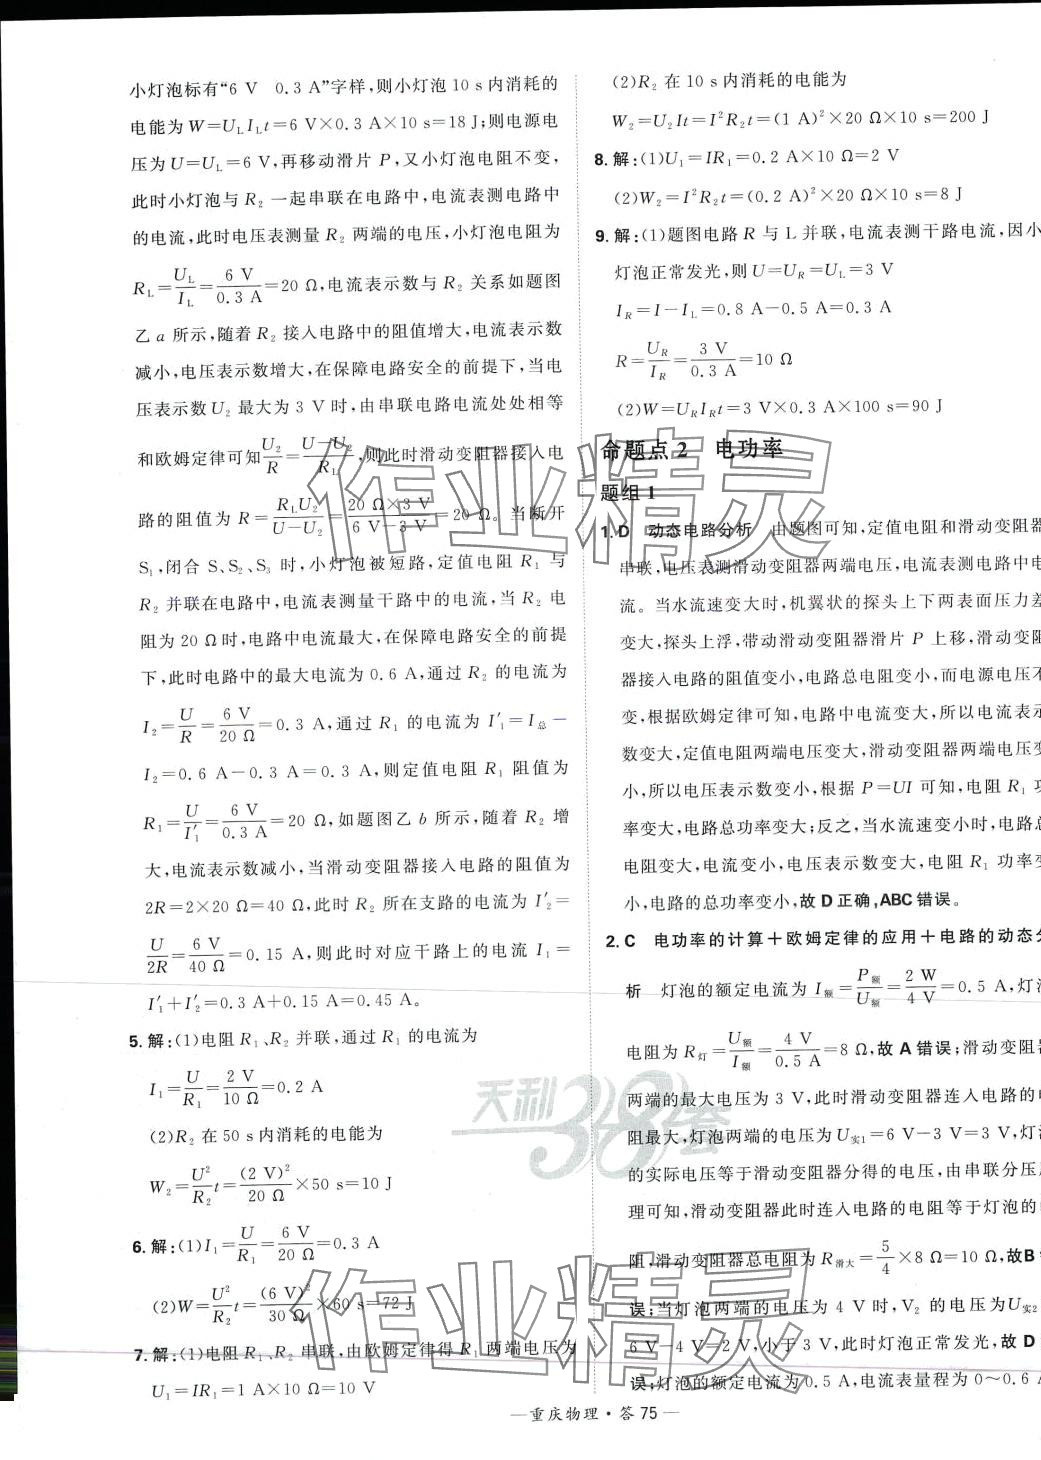 小灯泡标有“6 V　0.3 A”字样,则小灯泡 10 s 内消耗的
电能为 W=U_L I_L t=6 V×0.3 A×10 s=18 J;则电源电
压为 U=U_L=6 V,再移动滑片 P,又小灯泡电阻不变,
此时小灯泡与 R₂ 一起串联在电路中,电流表测电路中
的电流,此时电压表测量 R₂ 两端的电压,小灯泡电阻为
R_L=U_L/I_L=6 V/0.3 A=20 Ω,电流表示数与 R₂ 关系如题图
乙 a 所示,随着 R₂ 接入电路中的阻值增大,电流表示数
减小,电压表示数增大,在保障电路安全的前提下,当电
压表示数 U₂ 最大为 3 V 时,由串联电路电流处处相等
和欧姆定律可知 U₂/R=(U-U₂)/R_L,则此时滑动变阻器接入电
路的阻值为 R=R_L U₂/(U-U₂)=(20 Ω×3 V)/(6 V-3 V)=20 Ω。当断开
S₁,闭合 S、S₂、S₃ 时,小灯泡被短路,定值电阻 R₁ 与
R₂ 并联在电路中,电流表测量干路中的电流,当 R₂ 电
阻为 20 Ω 时,电路中电流最大,在保障电路安全的前提
下,此时电路中的最大电流为 0.6 A,通过 R₂ 的电流为
I₂=U/R=6 V/20 Ω=0.3 A,通过 R₁ 的电流为 I′₁=I总-
I₂=0.6 A-0.3 A=0.3 A,则定值电阻 R₁ 阻值为
R₁=U/I′₁=6 V/0.3 A=20 Ω,如题图乙 b 所示,随着 R₂ 增
大,电流表示数减小,当滑动变阻器接入电路的阻值为
2R=2×20 Ω=40 Ω,此时 R₂ 所在支路的电流为 I′₂=
U/2R=6 V/40 Ω=0.15 A,则此时对应干路上的电流 I₁=
I′₁+I′₂=0.3 A+0.15 A=0.45 A。
5. 解:(1)电阻 R₁、R₂ 并联,通过 R₁ 的电流为
I₁=U/R₁=2 V/10 Ω=0.2 A
(2)R₂ 在 50 s 内消耗的电能为
W₂=U²/R₂ t=(2 V)²/20 Ω×50 s=10 J
6. 解:(1)I₁=U/R₁=6 V/20 Ω=0.3 A
(2)W=U²/R₂ t=(6 V)²/30 Ω×60 s=72 J
7. 解:(1)电阻 R₁、R₂ 串联,由欧姆定律得 R₁ 两端电压为
U₁=IR₁=1 A×10 Ω=10 V
(2)R₂ 在 10 s 内消耗的电能为
W₂=U₂It=I²R₂t=(1 A)²×20 Ω×10 s=200 J
8. 解:(1)U₁=IR₁=0.2 A×10 Ω=2 V
(2)W₂=I²R₂t=(0.2 A)²×20 Ω×10 s=8 J
9. 解:(1)题图电路 R 与 L 并联,电流表测干路电流,因小
灯泡正常发光,则 U=U_R=U_L=3 V
I_R=I-I_L=0.8 A-0.5 A=0.3 A
R=U_R/I_R=3 V/0.3 A=10 Ω
(2)W=U_R I_R t=3 V×0.3 A×100 s=90 J
命题点 2　电功率
题组 1
1. D　动态电路分析　由题图可知,定值电阻和滑动变阻器
串联,电压表测滑动变阻器两端电压,电流表测电路中电
流。当水流速变大时,机翼状的探头上下两表面压力差
变大,探头上浮,带动滑动变阻器滑片 P 上移,滑动变阻
器接入电路的阻值变小,电路总电阻变小,而电源电压不
变,根据欧姆定律可知,电路中电流变大,所以电流表示
数变大,定值电阻两端电压变大,滑动变阻器两端电压变
小,所以电压表示数变小,根据 P=UI 可知,电阻 R₁ 功
率变大,电路总功率变大;反之,当水流速变小时,电路总
电阻变大,电流变小,电压表示数变大,电阻 R₁ 功率变
小,电路的总功率变小,故 D 正确,ABC 错误。
2. C　电功率的计算+欧姆定律的应用+电路的动态分
析　灯泡的额定电流为 I额=P额/U额=2 W/4 V=0.5 A,灯泡
电阻为 R灯=U额/I额=4 V/0.5 A=8 Ω,故 A 错误;滑动变阻器
两端的最大电压为 3 V,此时滑动变阻器连入电路的电
阻最大,灯泡两端的电压为 U实1=6 V-3 V=3 V,灯泡
的实际电压等于滑动变阻器分得的电压,由串联分压原
理可知,滑动变阻器此时连入电路的电阻等于灯泡的电
阻,滑动变阻器总电阻为 R滑大=5/4×8 Ω=10 Ω,故 B 错
误;当灯泡两端的电压为 4 V 时,V₂ 的电压为 U实2
6 V-4 V=2 V,小于 3 V,此时灯泡正常发光,故 D
误;灯泡的额定电流为 0.5 A,电流表量程为 0～0.6 A
天利38套
作业精灵
作业精灵
—重庆物理·答 75—